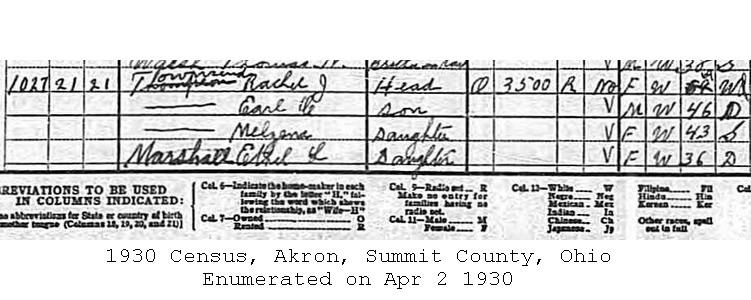 Thomas W. V M W 30 S
1027 21 21 Townsend Rachel J Head O 3500 R No F W W
Thompson
—— Earl son V M W 46 D
—— Melzena Daughter V F W 43 S
Marshall Ethel L Daughter V F W 36 D
REVIATIONS TO BE USED
IN COLUMNS INDICATED:
se abbreviations for State or country of birth
mother tongue (Columns 18, 19, 20, and 21)]
Col. 6—Indicate the home-maker in each
family by the letter "H," fol-
lowing the word which shows
the relationship, as "Wife—H"
Col. 7—Owned O
Rented R
Col. 9—Radio set R
Make no entry for
families having no
radio set.
Col. 11—Male M
Female F
Col. 12—White W
Negro Neg
Mexican Mex
Indian In
Chinese Ch
Japanese Jp
Filipino Fil
Hindu Hin
Korean Kor
Other races, spell
out in full
Co
1930 Census, Akron, Summit County, Ohio
Enumerated on Apr 2 1930